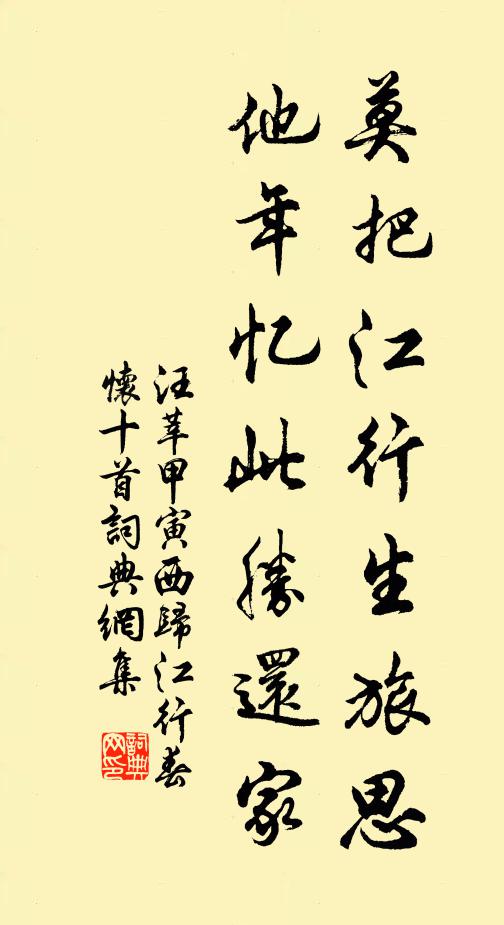 莫把江行生旅思
他年忆此勝還家
汪莘甲寅西歸江行春
懷十首詞典網集
詞典
网印